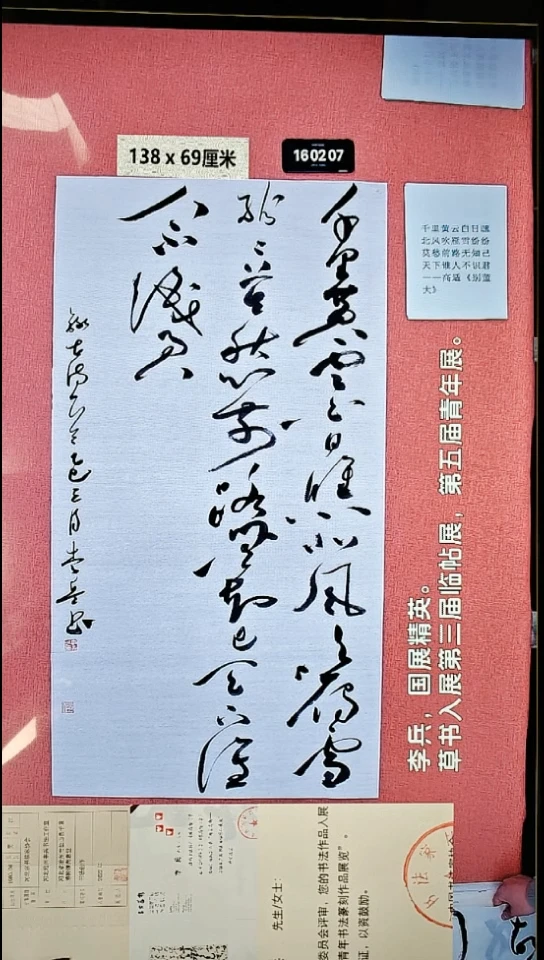 138 x 69厘米
160207
千里黄云白日曛北风吹雁雪
纷纷莫愁前路無知己天下谁
人不識君
乙巳三月李兵书
千里黄云白日曛
北风吹雁雪纷纷
莫愁前路无知己
天下谁人不识君
——高适《别董
大》
李兵，国展精英。
草书入展第三届临帖展，第五届青年展。
先生/女士：
委员会评审，您的书法作品入展
青年书法篆刻作品展览”。
证，以资鼓励。